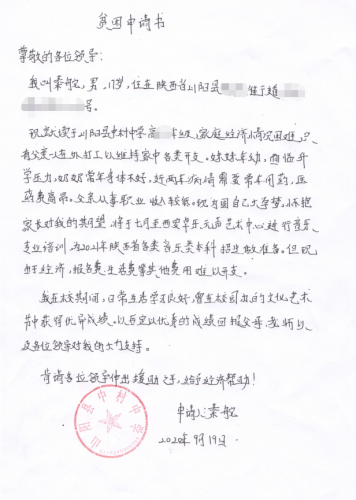 贫困申请书
尊敬的各位领导：
我叫秦舵，男，17岁，住在陕西省山阳县
号。
现就读于山阳县中村中学高 年级，家庭经济情况困难，只
有父亲一人在外打工以维持家中各类开支。妹妹年幼，面临升
学压力，奶奶常年身体不好，近两年病情需要常年用药，医
药费高昂。父亲从事职业收入较低。现为圆自己大学梦，怀抱
家长对我的期望，将于七月至西安华乐元声艺术中心进行音乐
专业培训，为2021年陕西省各类音乐类本科招生做准备。但现
由于经济，报名费生活费等其他费用难以开支。
我在校期间，日常生活学习良好，曾在校园举办的文化艺术
节中获得优异成绩。以后定以优秀的成绩回报父母，老师以
及各位领导对我的大力支持。
肯请各位领导伸出援助之手，给予经济帮助！
山阳县中村中学
申请人：秦舵
2020年9月19日